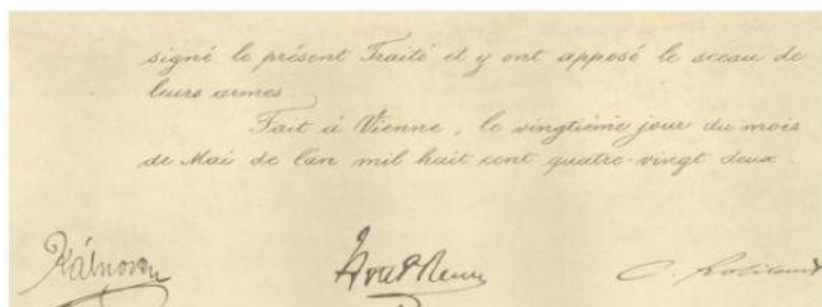 signé le présent Traité et y ont apposé le sceau de
leurs armes.
Fait à Vienne, le vingtième jour du mois
de Mai de l'an mil huit cent quatre-vingt deux.
Kálnoky H VII P Reuss C. Robilant